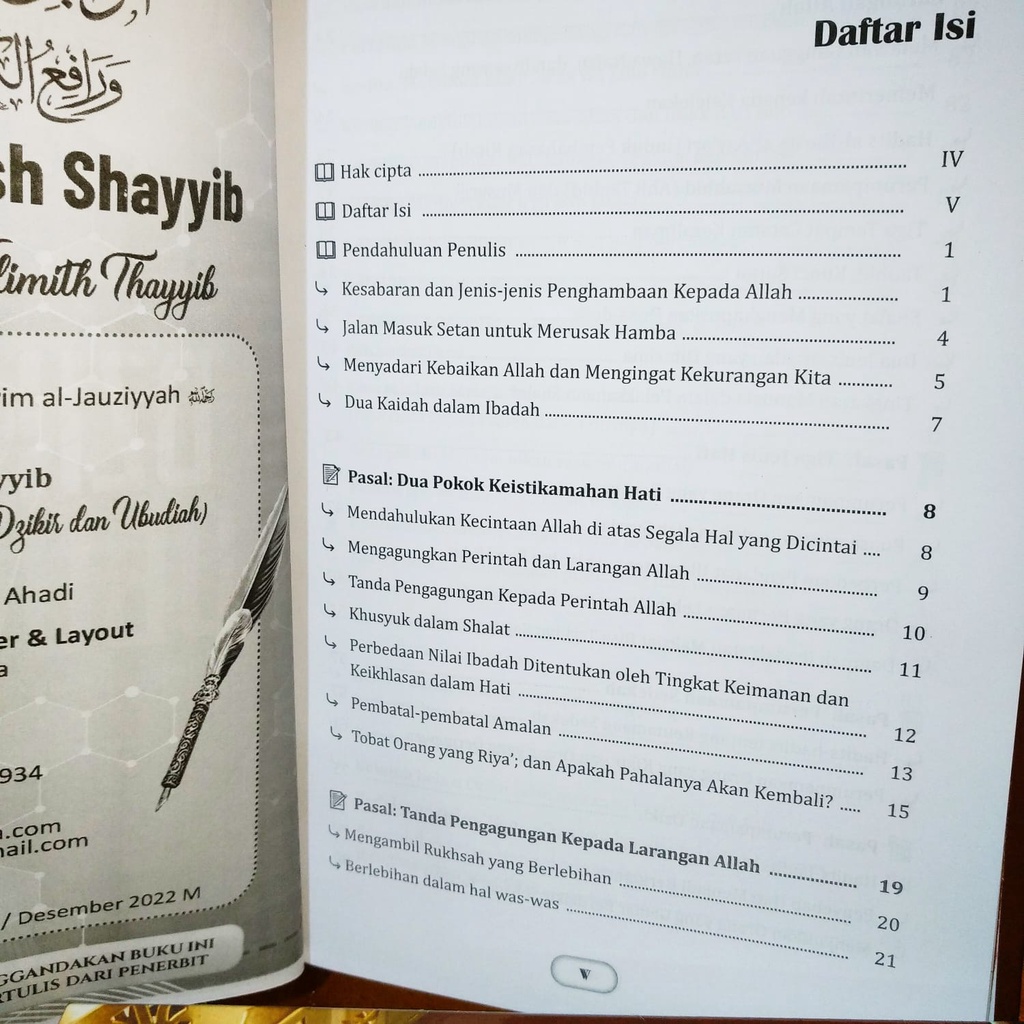 ورافع
sh Shayyib
limith Thayyib
im al-Jauziyyah
yyib
Dzikir dan Ubudiah)
Ahadi
er & Layout
a
934
a.com
ail.com
/ Desember 2022 M
GGANDAKAN BUKU INI
RTULIS DARI PENERBIT
Daftar Isi
Hak cipta .......... IV
Daftar Isi .......... V
Pendahuluan Penulis .......... 1
Kesabaran dan Jenis-jenis Penghambaan Kepada Allah .......... 1
Jalan Masuk Setan untuk Merusak Hamba .......... 4
Menyadari Kebaikan Allah dan Mengingat Kekurangan Kita .......... 5
Dua Kaidah dalam Ibadah .......... 7
Pasal: Dua Pokok Keistikamahan Hati .......... 8
Mendahulukan Kecintaan Allah di atas Segala Hal yang Dicintai .... 8
Mengagungkan Perintah dan Larangan Allah .......... 9
Tanda Pengagungan Kepada Perintah Allah .......... 10
Khusyuk dalam Shalat .......... 11
Perbedaan Nilai Ibadah Ditentukan oleh Tingkat Keimanan dan
Keikhlasan dalam Hati .......... 12
Pembatal-pembatal Amalan .......... 13
Tobat Orang yang Riya'; dan Apakah Pahalanya Akan Kembali? ..... 15
Pasal: Tanda Pengagungan Kepada Larangan Allah .......... 19
Mengambil Rukhsah yang Berlebihan .......... 20
Berlebihan dalam hal was-was .......... 21
V